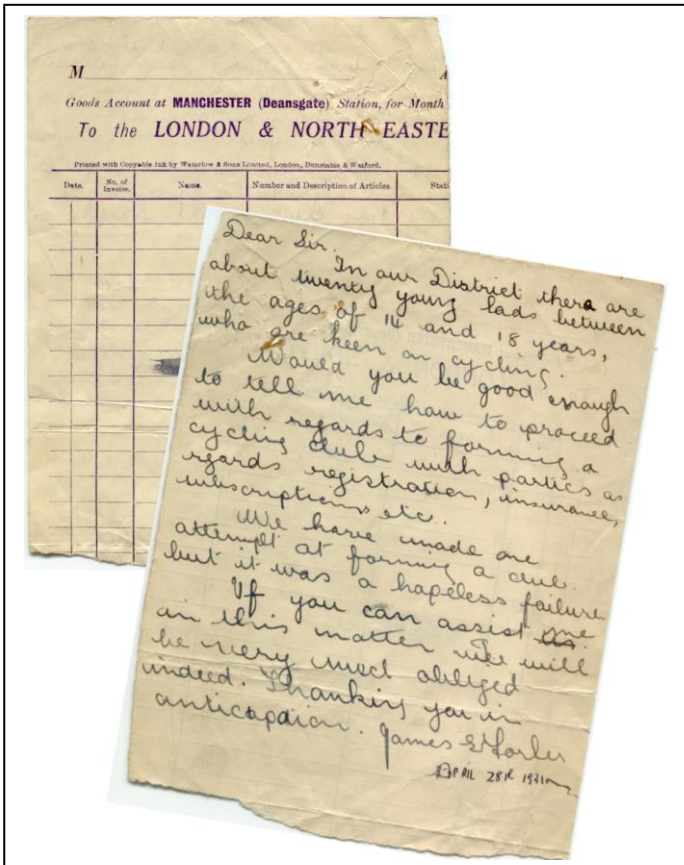 M
A
Goods Account at MANCHESTER (Deansgate) Station, for Month
To the LONDON & NORTH EASTE
Printed with Copyable Ink by Waterlow & Sons Limited, London, Dunstable & Watford.
Date. No. of Invoice. Name. Number and Description of Articles. Stati
Dear Sir.
In our District there are
about twenty young lads between
the ages of 14 and 18 years,
who are keen on cycling.
Would you be good enough
to tell me how to proceed
with regards to forming a
cycling club with partics as
regards registration, insurance,
subscriptions etc.
We have made one
attempt at forming a club.
but it was a hopeless failure
If you can assist me
in this matter we will
be very much obliged
indeed. Thanking you in
anticapaion. James
APRIL 28th 1931